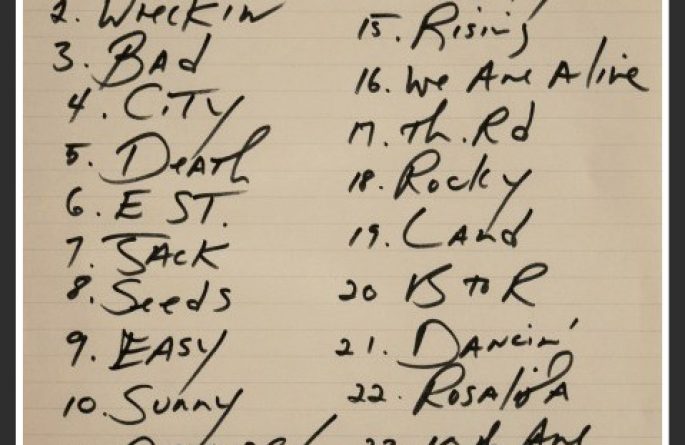 2. Wreckin'
3. Bad
4. City
5. Death
6. E ST.
7. Jack
8. Seeds
9. Easy
10. Sunny
15. Rising
16. We Are Alive
17. Th. Rd
18. Rocky
19. Land
20 B to R
21. Dancin'
22. Rosalita